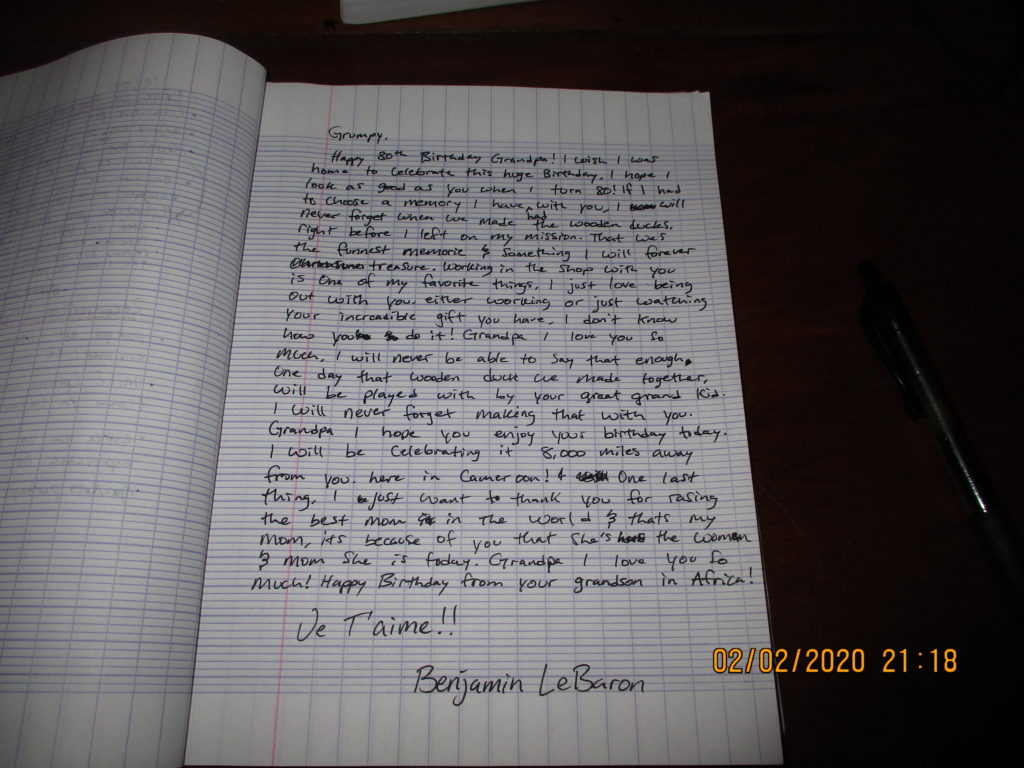 Grumpy,
Happy 80th Birthday Grandpa! I wish I was
home to celebrate this huge Birthday. I hope I
look as good as you when I turn 80! If I had
to choose a memory I have with you, I will
never forget when we made had the wooden ducks,
right before I left on my mission. That was
the funnest memorie & something I will forever
treasure. Working in the shop with you
is one of my favorite things. I just love being
out with you either working or just watching
your increadible gift you have. I don't know
how you do it! Grandpa I love you so
much. I will never be able to say that enough.
One day that wooden duck we made together,
will be played with by your great grand kid.
I will never forget making that with you.
Grandpa I hope you enjoy your birthday today.
I will be celebrating it 8,000 miles away
from you, here in Cameroon! & One last
thing, I just want to thank you for rasing
the best mom in the world & thats my
mom, its because of you that she's the woman
& mom she is today. Grandpa I love you so
much! Happy Birthday from your grandson in Africa!
Je T'aime!!
Benjamin LeBaron
02/02/2020 21:18